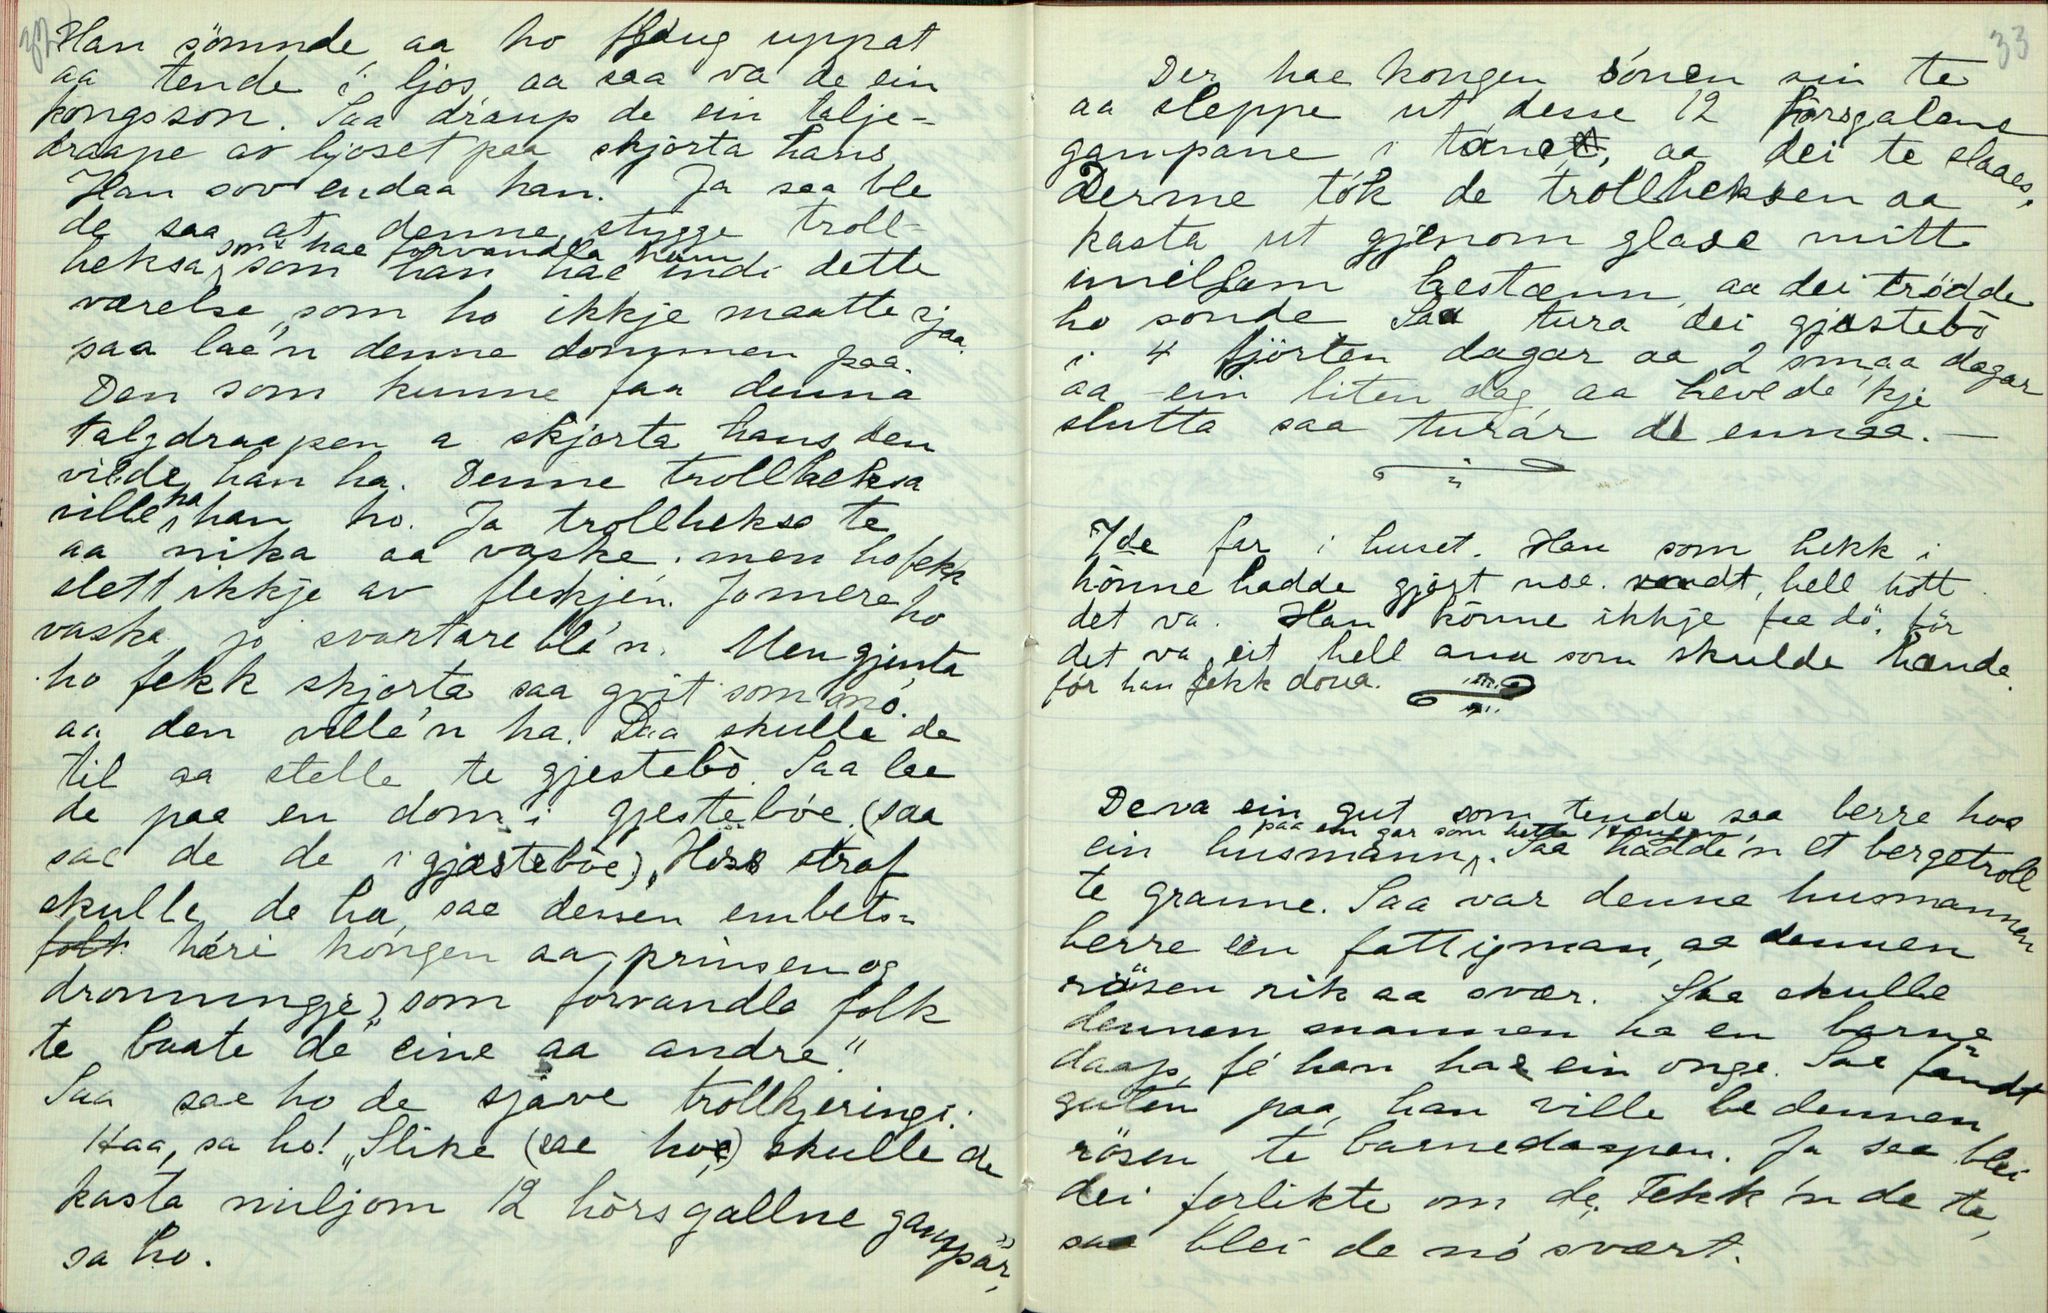 32
Han sömnde, aa ho flaug uppat
aa tende i ljos, aa saa va de ein
kongsson. Saa draup de ein talje-
draape av ljoset paa skjorta hans,
Han sov endaa han. Ja saa ble
de saa at denne stygge troll-
som hae forvandla han
heksa, som han hae indi dette
værelse, som ho ikkje maatte sjaa.
saa lae'n denne dommen paa.
Den som kunne faa denna
talgdraapen a skjorta hans, den
vilde han ha. Denne trollheksa
ville ha han ho. Ja trollheksa te
aa nika aa vaske, men ho fekk
slett ikkje av flekkjen. Jo mere ho
vaska, jo svartare ble'n. Men gjenta
ho fekk skjorta saa gvit som snö.
aa den ville'n ha. Daa skulle de
til aa stelle te gjestebö. Saa lae
de paa en dom i gjesteböe. (saa
sae de de i gjæsteböe) "Hoss straf
skulle de ha, sae dessen embets-
folk häri kongen aa prinsen og
dronningje) som forvandla folk
te baate de eine aa andre."
Saa sae ho de sjave trollkjeringi.
Haa, sa ho! "Slike (sae ho) skulle de
kasta miljom 12 hörsgallne gampar,"
sa ho.
33
Der hae kongen sónen sin te
aa sleppe ut desse 12 hörsgalene
gampane i tonet, aa dei te slaaes.
Derme tók de trollheksen aa
kasta ut gjenom glase mitt
imiljom hestænn, aa dei trödde
ho sonde. Saa tura dei gjæstebö
i 4 fjörten dagar aa 2 smaa dagar
aa ein liten dag aa heve de'kje
slutta saa turar de ennaa. —
7de far i huset. Han som hekk i
hönne hadde gjort noe vondt, hell hött
det va. Han könne ikkje faa dö, för
det va eit hell ana som skulde hænde,
för han fekk döua.
De va ein gut som tende saa berre hos
paa en gar som hette
ein husmann. Saa hadde'n et bergetroll
te granne. Saa var denne husmannen
berre en fattigman, aa dennen
rösen rik aa svær. Saa skulle
dennen mannen ha en barne-
daap, fé han hae ein onge. Saa fandt
guten paa, han ville be dennen
rösen te barnedaapen. Ja saa blei
dei forlikte om de. Fekk'n de te,
saa blei de nó svært.